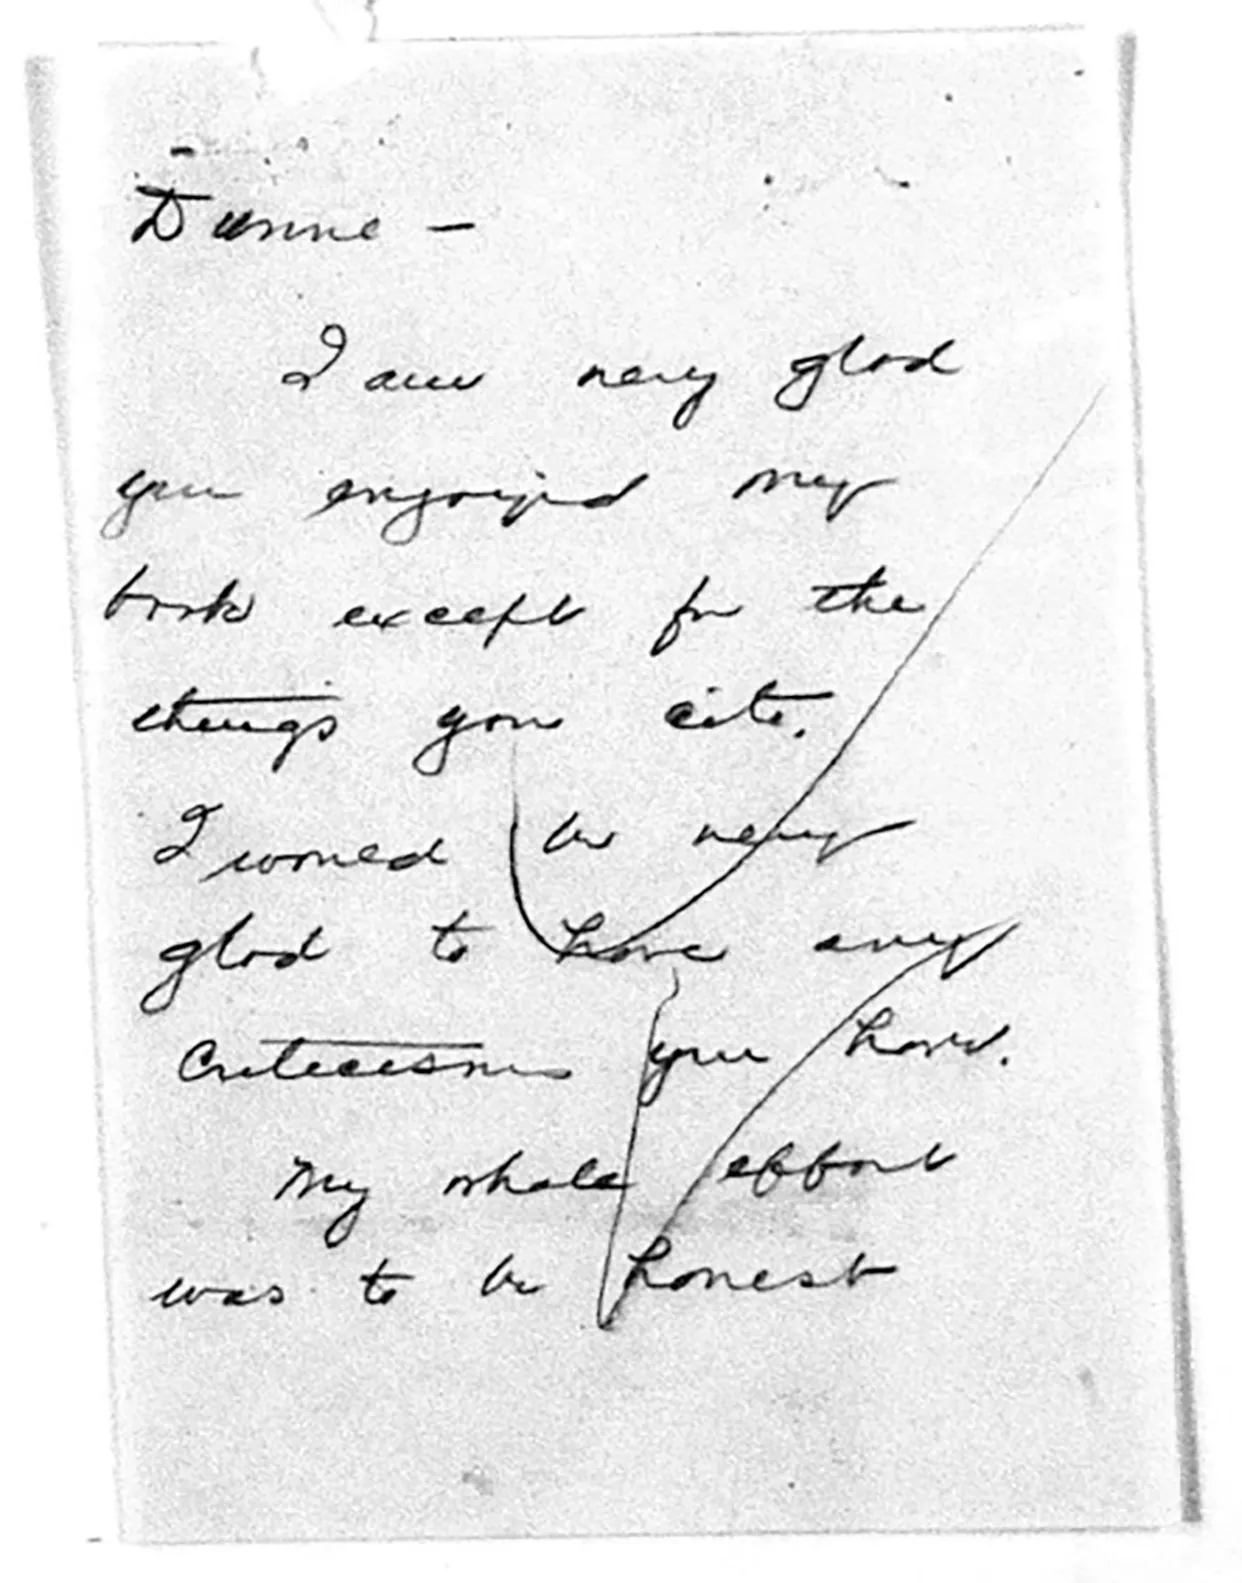 Dunne —
I am very glad
you enjoyed my
book except for the
things you cite.
I would be very
glad to have any
criticisms you have.
My whole effort
was to be honest